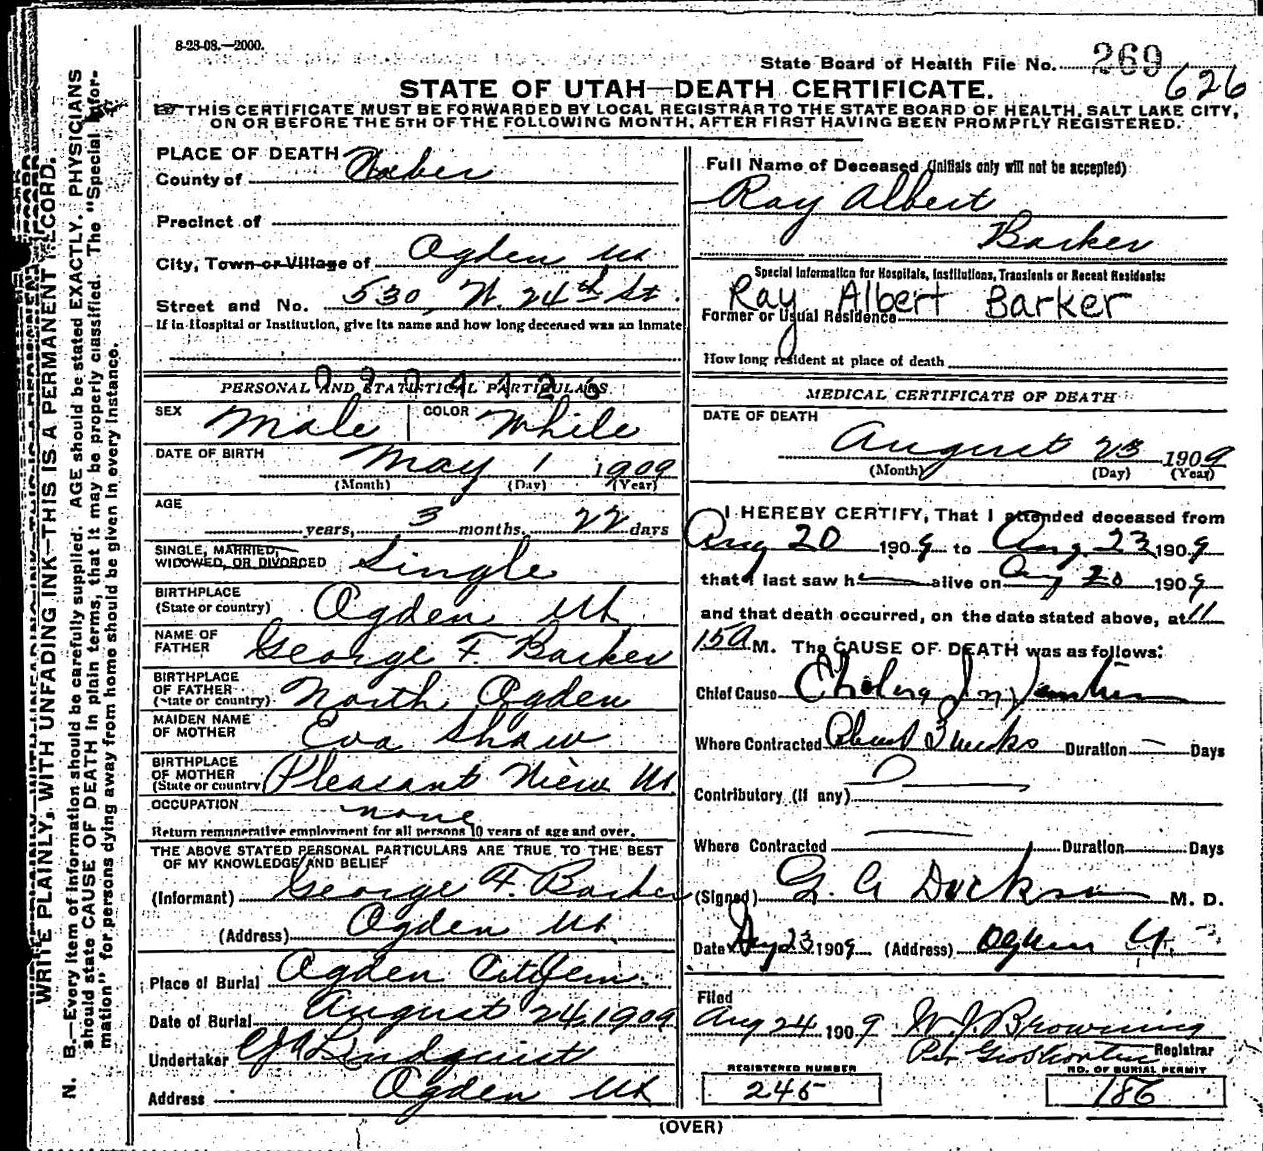 8-23-08.—2000.
State Board of Health File No. 269
626
STATE OF UTAH—DEATH CERTIFICATE.
THIS CERTIFICATE MUST BE FORWARDED BY LOCAL REGISTRAR TO THE STATE BOARD OF HEALTH, SALT LAKE CITY,
ON OR BEFORE THE 5TH OF THE FOLLOWING MONTH, AFTER FIRST HAVING BEEN PROMPTLY REGISTERED.
WRITE PLAINLY, WITH UNFADING INK—THIS IS A PERMANENT RECORD.
N. B.—Every item of information should be carefully supplied. AGE should be stated EXACTLY. PHYSICIANS
should state CAUSE OF DEATH in plain terms, that it may be properly classified. The "Special Infor-
mation" for persons dying away from home should be given in every instance.
PLACE OF DEATH
County of Weber
Precinct of
City, Town or Village of Ogden Ut
Street and No. 530 W. 24th St.
If in Hospital or Institution, give its name and how long deceased was an inmate
PERSONAL AND STATISTICAL PARTICULARS
SEX Male COLOR White
DATE OF BIRTH May 1 1909
(Month) (Day) (Year)
AGE
years, 3 months, 22 days
SINGLE, MARRIED,
WIDOWED, OR DIVORCED Single
BIRTHPLACE
(State or country) Ogden Ut
NAME OF
FATHER George F. Barker
BIRTHPLACE
OF FATHER
(State or country) North Ogden
MAIDEN NAME
OF MOTHER Eva Shaw
BIRTHPLACE
OF MOTHER
(State or country) Pleasant View Ut
OCCUPATION none
Return remunerative employment for all persons 10 years of age and over.
THE ABOVE STATED PERSONAL PARTICULARS ARE TRUE TO THE BEST
OF MY KNOWLEDGE AND BELIEF
(Informant) George F. Barker
(Address) Ogden Ut
Place of Burial Ogden City Cem.
Date of Burial August 24, 1909
Undertaker Lindquist
Address Ogden Ut
Full Name of Deceased (Initials only will not be accepted)
Ray Albert
Barker
Special Information for Hospitals, Institutions, Transients or Recent Residents:
Ray Albert Barker
Former or Usual Residence
How long resident at place of death
MEDICAL CERTIFICATE OF DEATH
DATE OF DEATH
August 23 1909
(Month) (Day) (Year)
I HEREBY CERTIFY, That I attended deceased from
Aug 20 1909 to Aug 23 1909
that I last saw h alive on Aug 20 1909
and that death occurred, on the date stated above, at 11
15 A M. The CAUSE OF DEATH was as follows:
Chief Cause Cholera Infantum
Where Contracted About 3 weeks Duration — Days
Contributory (If any)
Where Contracted Duration Days
(Signed) G. A. Dickson M. D.
Date Aug 23 1909 (Address) Ogden Ut
Filed
Aug 24 1909 W. J. Browning
Per Geo Shorten Registrar
REGISTERED NUMBER
245
NO. OF BURIAL PERMIT
186
(OVER)